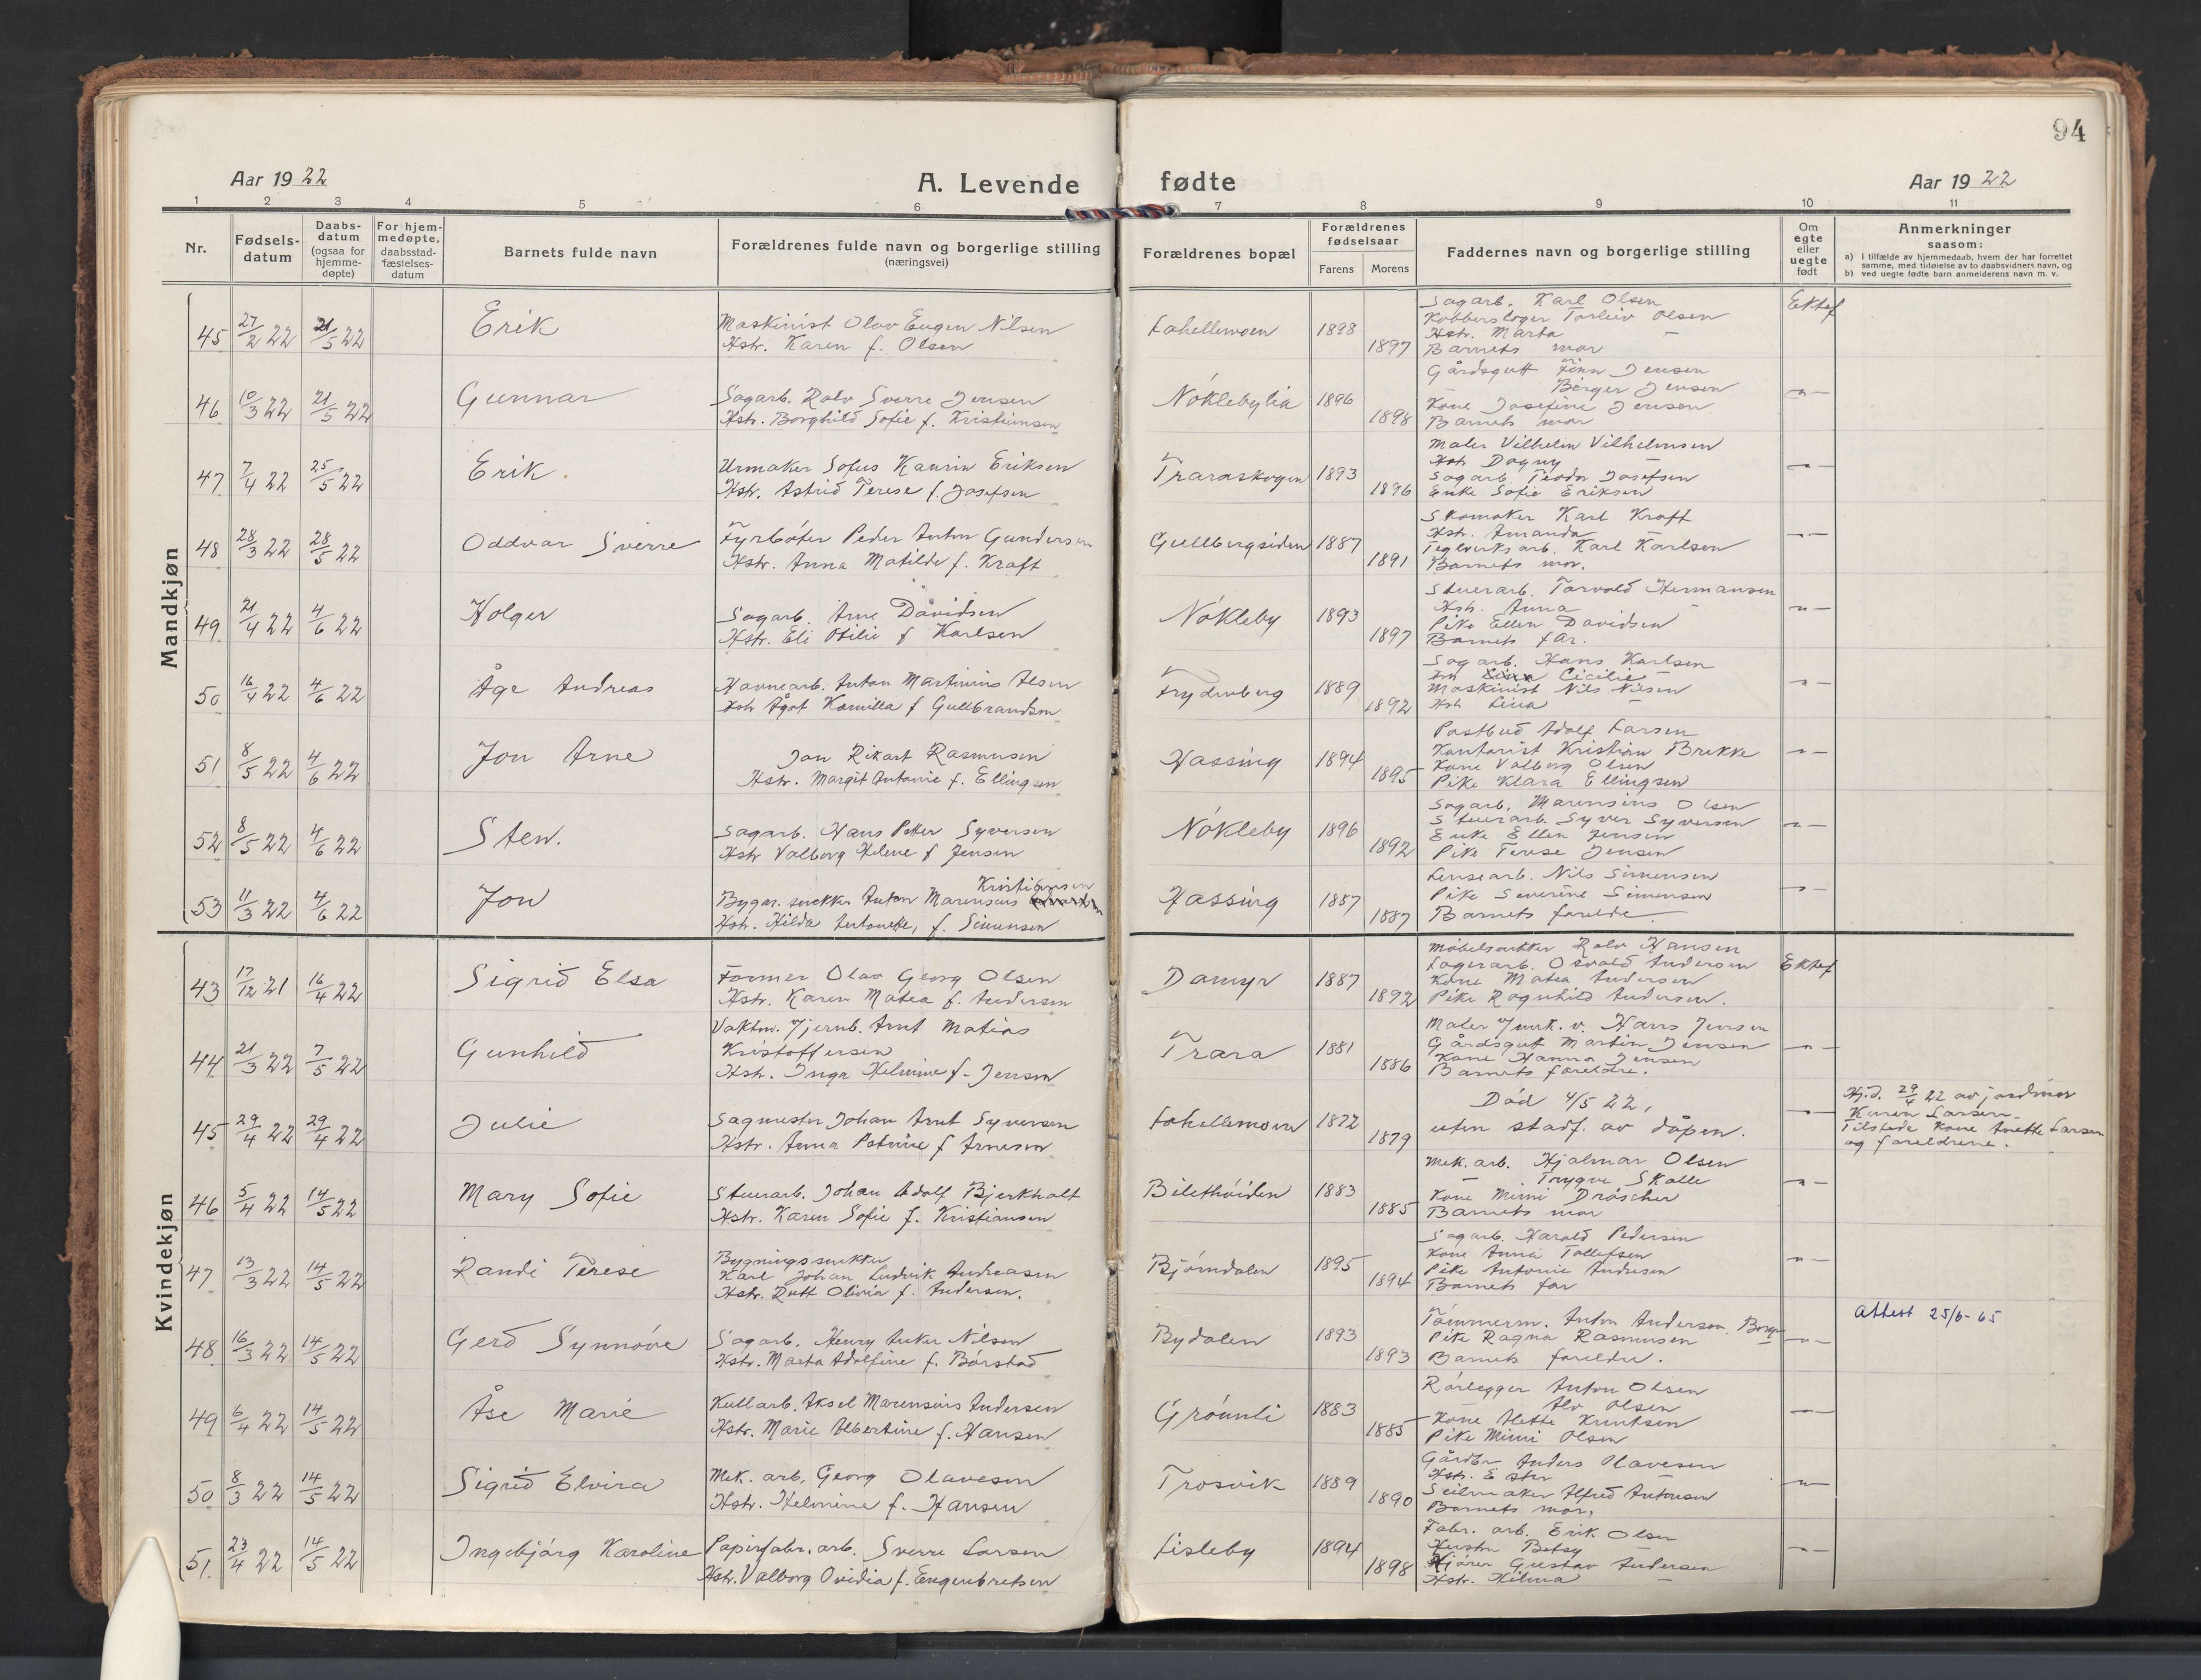 94
Aar 1922
A. Levende fødte
Aar 1922
1 2 3 4 5 6 7 8 9 10 11
Nr.
Fødsels-
datum
Daabs-
datum
(ogsaa for
hjemme-
døpte)
For hjem-
medøpte,
daabsstad-
fæstelses-
datum
Barnets fulde navn
Forældrenes fulde navn og borgerlige stilling
(næringsvei)
Forældrenes bopæl
Forældrenes
fødselsaar
Farens Morens
Faddernes navn og borgerlige stilling
Om
egte
eller
uegte
født
Anmerkninger
saasom:
a) I tilfælde av hjemmedaab, hvem der har forrettet
samme, med tilføielse av to daabsvidners navn, og
b) ved uegte fødte barn anmelderens navn m. v.
Mandkjøn
45 27/2 22 21/5 22 Erik
Maskinist Olav Eugen Nilsen
Hstr. Karen f. Olsen
Lahellemoen 1898 1897
Sagarb. Karl Olsen
Kobberslager Torleiv Olsen
Hstr. Marta —
Barnets mor
Ektef
46 10/3 22 21/5 22 Gunnar
Sagarb. Rolv Sverre Jensen
Hstr. Borghild Sofie f. Kristiansen
Nöklebylia 1896 1898
Gårdsgutt Finn Jensen
— Birger Jensen
Kone Josefine Jensen
Barnets mor
—"—
47 7/4 22 25/5 22 Erik.
Urmaker Sofus Kaurin Eriksen
Hstr. Astrid Terese f. Josefsen
Traraskogen 1893 1896
Maler Vilhelm Vilhelmsen
Hstr Dagny —
Sagarb. Teodor Josefsen
Enke Sofie Eriksen
—"—
48 28/3 22 28/5 22 Oddvar Sverre
Fyrböter Peder Anton Gundersen
Hstr. Anna Matilde f. Kraft
Gullbergsiden 1887 1891
Skomaker Karl Kraft
Hstr. Amanda —
Teglverksarb. Karl Karlsen
Barnets mor.
—"—
49 21/4 22 4/6 22 Holger
Sagarb. Arne Davidsen
Hstr. Eli Otilie f Karlsen
Nökleby 1893 1897
Stuerarb. Torvald Hermansen
Hstr. Anna —
Pike Ellen Davidsen
Barnets far.
—"—
50 16/4 22 4/6 22 Åge Andreas
Havnearb. Anton Martinius Olsen
Hstr Ågot Kamilla f Gullbrandsen
Frydenberg 1889 1892
Sagarb. Hans Karlsen
Cicilie —
Maskinist Nils Nilsen
Hstr Lina —
—"—
51 8/5 22 4/6 22 Jon Arne
Jan Rikart Rasmussen
Hstr. Margit Antonie f. Ellingsen
Hassing 1894 1895
Postbud Adolf Larsen
Kontorist Kristian Brekke
Kone Valborg Olsen
Pike Klara Ellingsen
—"—
52 8/5 22 4/6 22 Sten.
Sagarb. Hans Petter Syversen
Hstr Valborg Helene f Jensen
Nökleby 1896 1892
Sagarb. Marensius Olsen
Stuerarb. Syver Syversen
Enke Ellen Jensen
Pike Terese Jensen
—"—
53 11/3 22 4/6 22 Jon
Kristiansen
Bygn. snekker Anton Marensius
Hstr. Hilda Antonette, f. Simensen
Hassing 1887 1887
Lensearb. Nils Simensen
Pike Severine Simensen
Barnets foreldre
—"—
Kvindekjøn
43 17/12 21 16/4 22 Sigrid Elsa
Former Olav Georg Olsen
Hstr. Karen Matea f. Andersen
Damyr 1887 1892
Möbelsnekker Rolv Hansen
Lagerarb. Osvald Andersen
Kone Matea Andersen
Pike Ragnhild Andersen.
Ektef
44 21/3 22 7/5 22 Gunhild
Vaktm. v/jernb. Arnt Matias
Kristoffersen
Hstr. Inga Helmine f. Jensen
Trara 1881 1886
Maler Hans Jensen
Gårdsgut Martin Jensen
Kone Hanna Jensen
Barnets foreldre.
—"—
45 29/4 22 29/4 22 Julie
Sagmester Johan Arnt Syversen
Hstr. Anna Petrine f Arnesen
Lahellemoen 1872 1879
Död 4/5 22,
uten stadf. av dåpen.
—"—
Hj.d. 29/4 22 av jordmor
Karen Larsen.
Tilstede Kone Anette Larsen
og foreldrene.
46 5/4 22 14/5 22 Mary Sofie
Stuerarb. Johan Adolf Bjerkholt
Hstr. Karen Sofie f. Kristiansen
Bilethöiden 1883 1885
Mek. arb. Hjalmar Olsen
— Trygve Skolle
Kone Mimi Dröscher
Barnets mor
—"—
47 13/3 22 14/5 22 Randi Terese
Bygningssnekker
Karl Johan Ludvik Andreasen
Hstr. Rutt Olivia f. Andersen.
Björndalen 1895 1894
Sagarb. Harald Pedersen
Kone Anna Tollefsen
Pike Antonie Andresen
Barnets far
—"—
48 16/3 22 14/5 22 Gerd Synnöve
Sagarb. Henry Anker Nilsen
Hstr. Marta Adolfine f. Börstad
Bydalen 1893 1893
Tömmerm. Anton Anderson. Borge
Pike Ragna Rasmussen
Barnets foreldre.
—"—
Attest 25/6-65
49 6/4 22 14/5 22 Åse Marie
Kullarb. Aksel Marensius Andersen
Hstr. Marie Albertine f. Hansen
Grönnli 1883 1885
Rörlegger Anton Olsen
— Alv Olsen
Kone Anette Knutsen
Pike Mimi Olsen
—"—
50 8/3 22 14/5 22 Sigrid Elvira
Mek. arb. Georg Olavesen
Hstr. Helmine f. Hansen
Trosvik 1889 1890
Gårdbr Anders Olavesen
Hstr. Ester —
Seilmaker Alfred Antonsen
Barnets mor,
—"—
51. 23/4 22 14/5 22 Ingebjörg Karoline
Papirfabr. arb. Sverre Larsen
Hstr. Valborg Ovidia f. Engenbretsen
Lisleby 1894 1898
Fabr. arb. Erik Olsen
Hustru Betsy —
Kjörer Gustav Andersen
Hstr. Hilma —
—"—